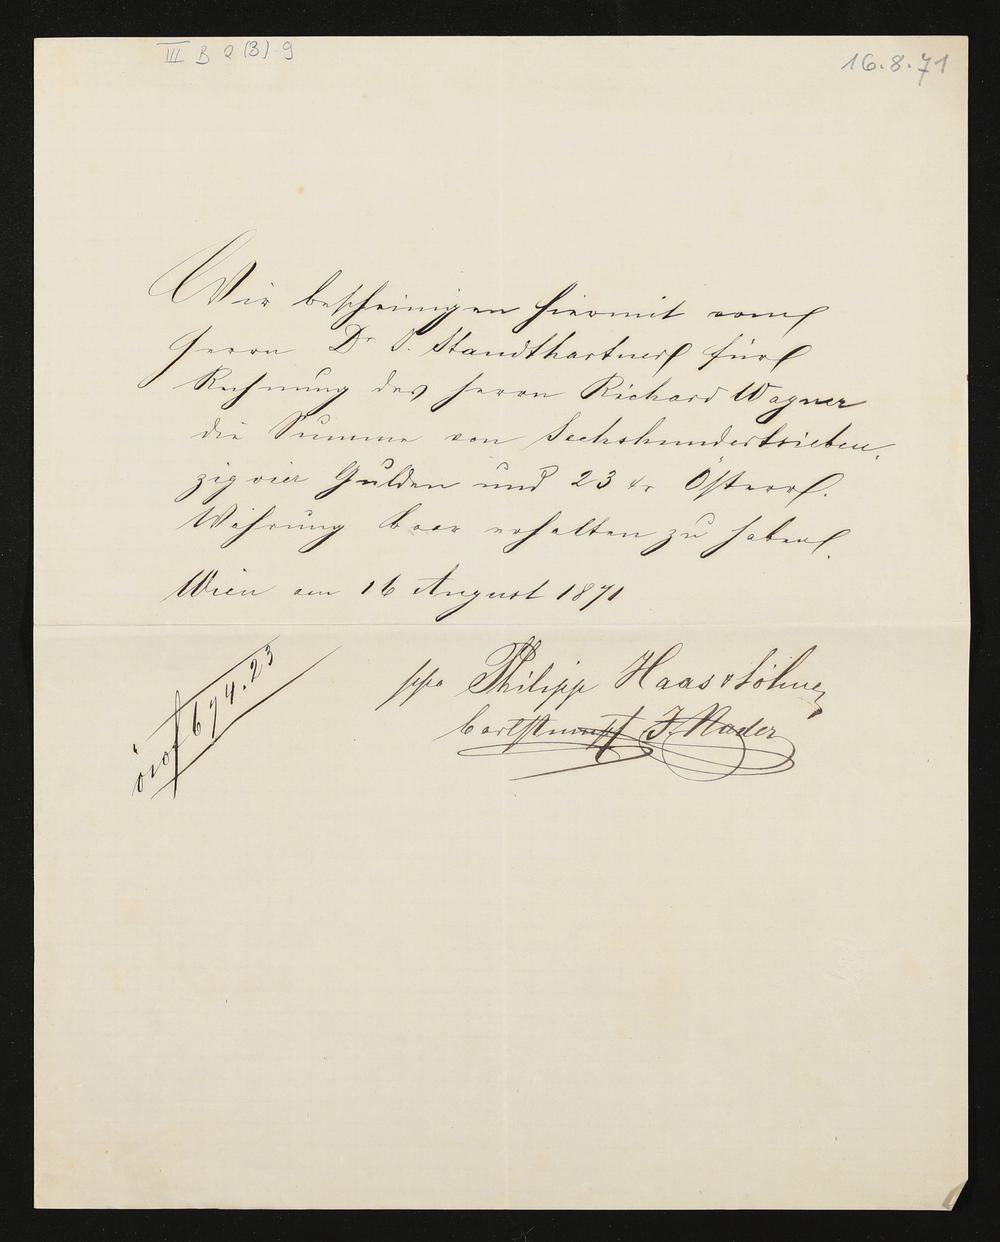 III B 2 (3)-9
16.8.71
Wir bescheinigen hiermit vom
Herrn Dr. J. Standthartner für
Rechnung des Herrn Richard Wagner
die Summe von Sechshundertsieben,
zig vier Gulden und 23 kr Österr.
Währung baar erhalten zu haben.
Wien am 16 August 1871
öwf 674.23
ppa Philipp Haas & Söhne
Carl Stumpf J. Mader